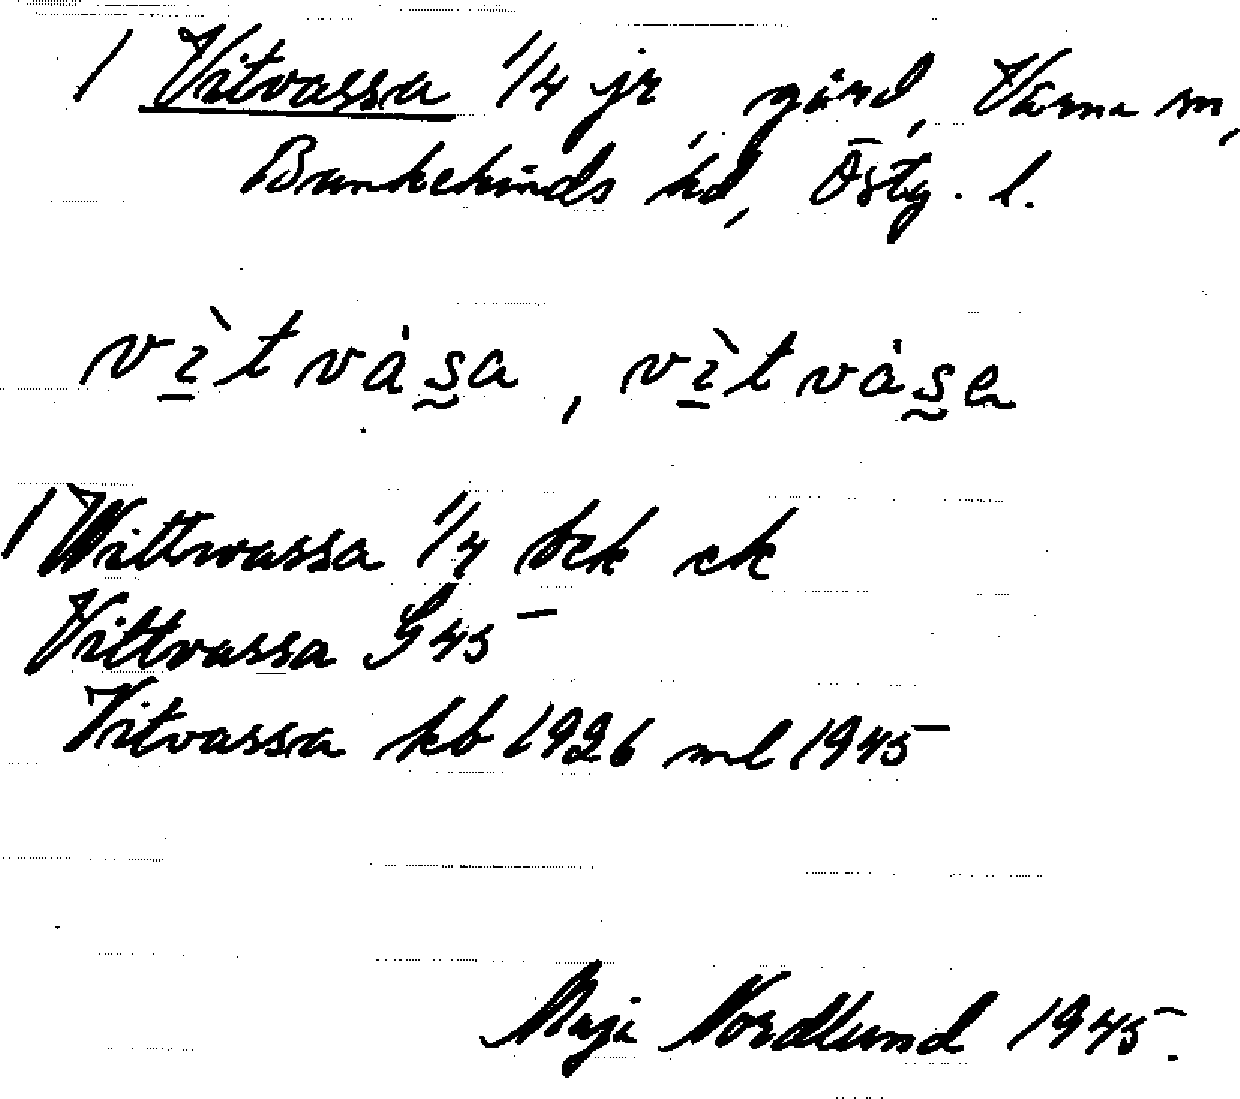 / Vitvassa 1/4 jr, gård, Värna sn,
Bankekinds hd, Östg. l.
vìtvȧsa, vìtvȧsa
/ Wittwassa 1/4 ck
Vittvassa G 45
Vitvassa kb 1926 ml 1945
Maja Nordlund 1945.